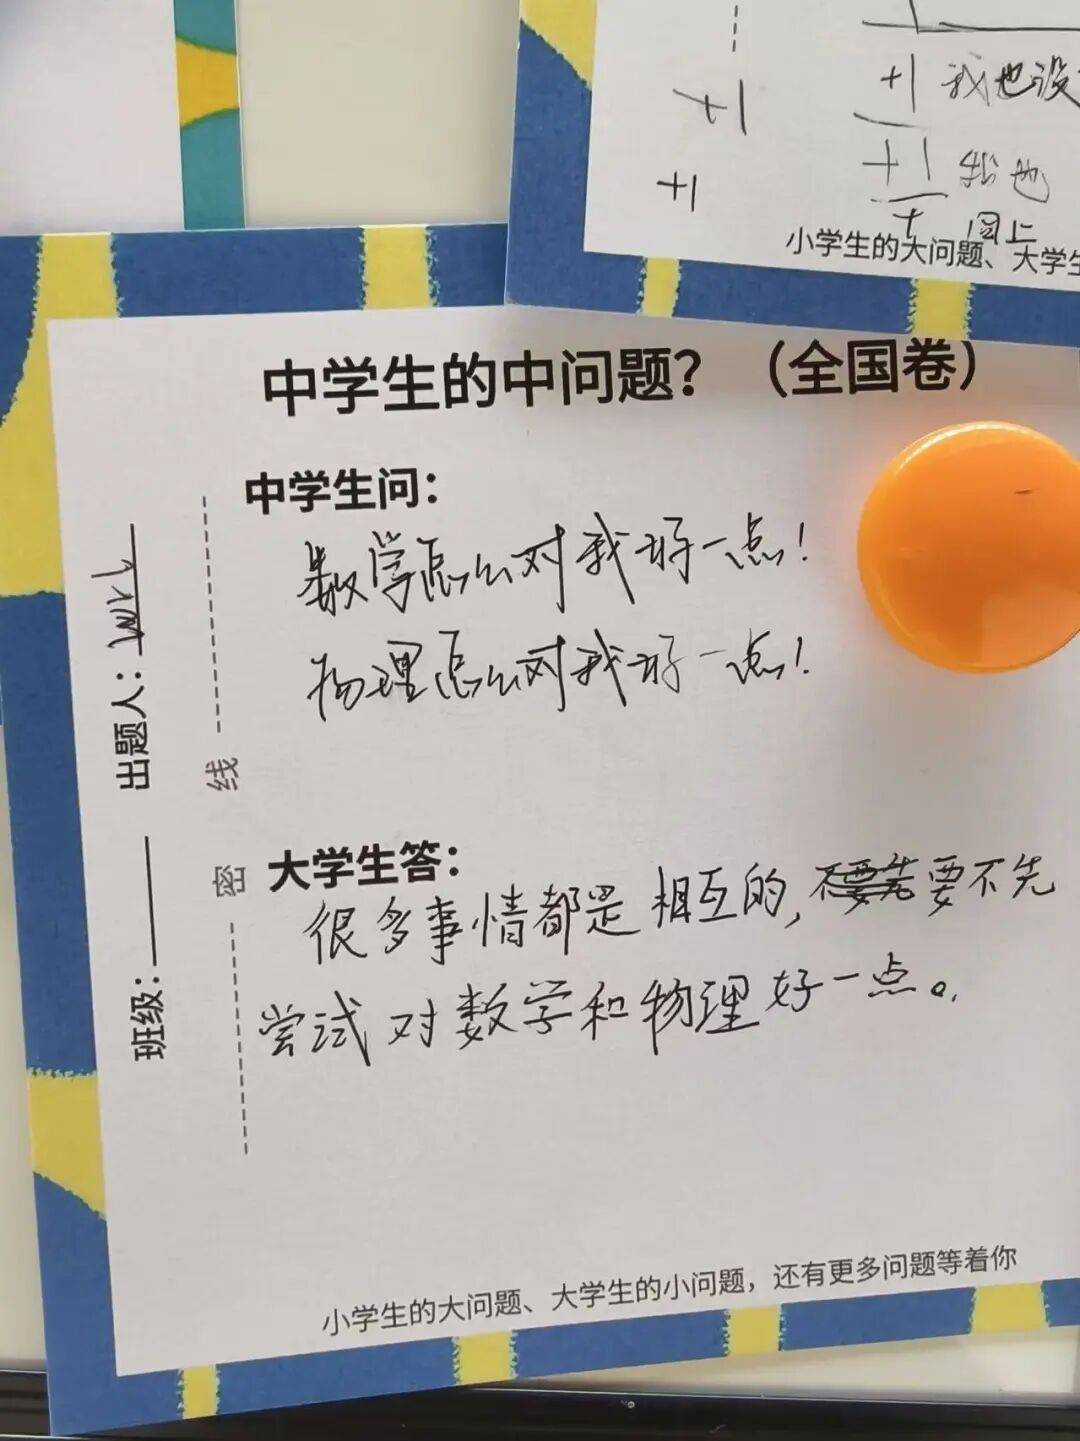 +1 我也没
+1
+1 我也
+1
同上
小学生的大问题、大学生
中学生的中问题？（全国卷）
中学生问：
数学怎么对我好一点！
物理怎么对我好一点！
出题人：
班级：
密 线
大学生答：
很多事情都是相互的，要不先
尝试对数学和物理好一点。
小学生的大问题、大学生的小问题，还有更多问题等着你